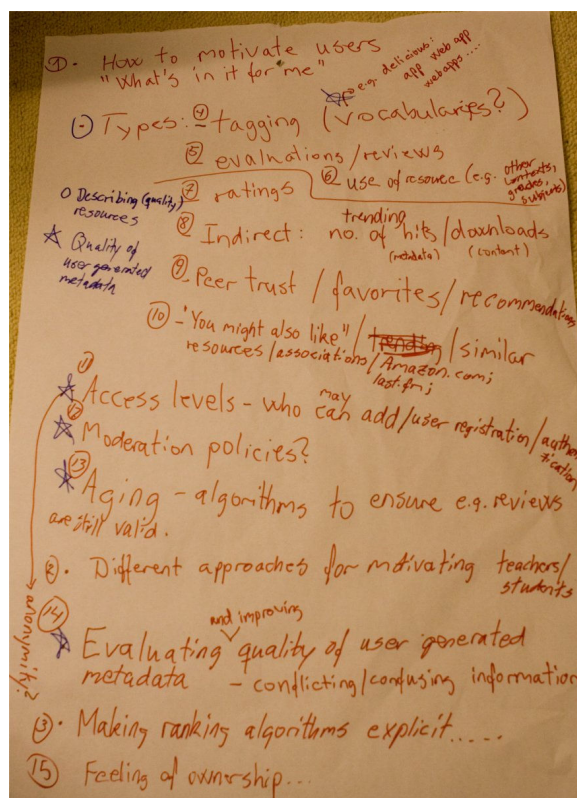 1. How to motivate users
"What's in it for me"
e.g. delicious:
app web app
webapps....
Types: 4 tagging (vocabularies?)
5 evaluations/reviews
6 use of resource (e.g. other
contexts,
grades,
subjects)
O Describing (quality)
resources
7 ratings
☆ Quality of
user generated
metadata
trending
8 Indirect: no. of hits/downloads
(metadata) (content)
9 - Peer trust / favorites / recommendations
10 - "You might also like" / trending / similar
resources / associations / Amazon.com;
last.fm;
11 ☆ Access levels - who can may add/user registration/authentication
12 ☆ Moderation policies?
13 ☆ Aging - algorithms to ensure e.g. reviews
are still valid.
2. Different approaches for motivating teachers/
students
anonymity?
14
and improving
☆ Evaluating quality of user generated
metadata - conflicting/confusing information
3. Making ranking algorithms explicit.....
15 Feeling of ownership...